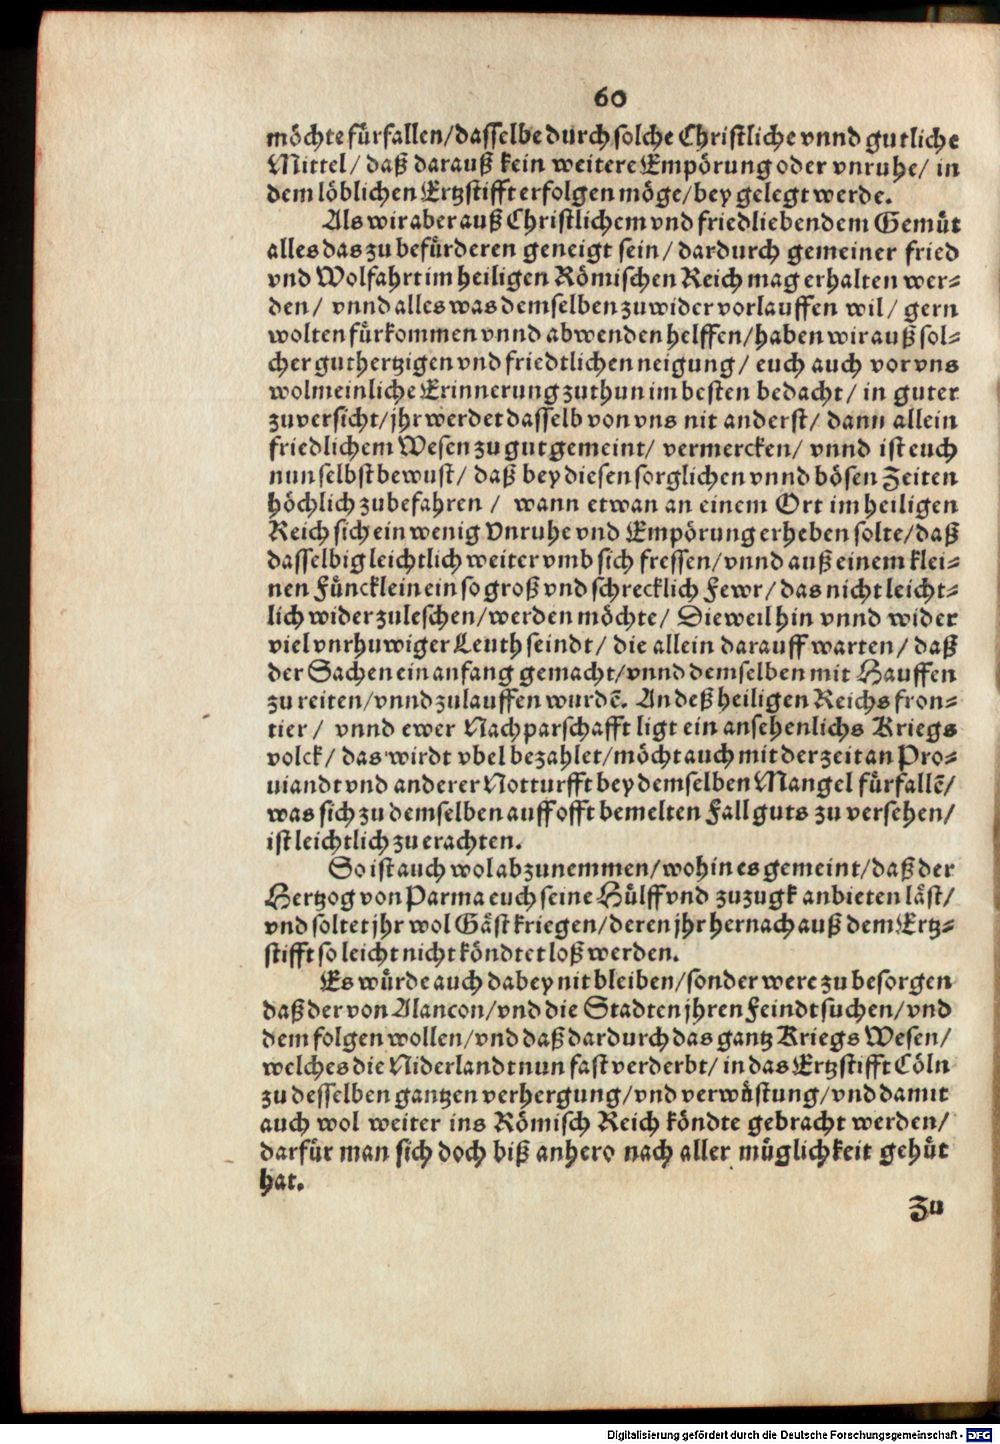 60
möchte fürfallen/dasselbe durch solche Christliche vnnd gutliche
Mittel/ daß darauß kein weitere Empörung oder vnruhe/ in
dem löblichen Ertzstifft erfolgen möge/bey gelegt werde.
Als wir aber auß Christlichem vnd friedliebendem Gemüt
alles das zu befürderen geneigt sein/ dardurch gemeiner fried
vnd Wolfahrt im heiligen Römischen Reich mag erhalten wer-
den/ vnnd alles was demselben zuwider vorlauffen wil/ gern
wolten fürkommen vnnd abwenden helffen/haben wir auß sol-
cher guthertzigen vnd friedtlichen neigung/ euch auch vor vns
wolmeinliche Erinnerung zuthun im besten bedacht/ in guter
zuversicht/jhr werdet dasselb von vns nit anderst/ dann allein
friedlichem Wesen zu gut gemeint/ vermercken/ vnnd ist euch
nun selbst bewust/ daß bey diesen sorglichen vnnd bösen Zeiten
höchlich zubefahren / wann etwan an einem Ort im heiligen
Reich sich ein wenig Vnruhe vnd Empörung erheben solte/daß
dasselbig leichtlich weiter vmb sich fressen/vnnd auß einem klei-
nen Füncklein ein so groß vnd schrecklich Fewr/ das nicht leicht-
lich wider zuleschen/werden möchte/ Dieweil hin vnnd wider
viel vnrhuwiger Leuth seindt/ die allein darauff warten/ daß
der Sachen ein anfang gemacht/vnnd demselben mit Hauffen
zu reiten/vnnd zulauffen wurdẽ. An deß heiligen Reichs fron-
tier/ vnnd ewer Nachparschafft ligt ein ansehenlichs Kriegs
volck/ das wirdt vbel bezahlet/möcht auch mit der zeit an Pro-
uiandt vnd anderer Notturfft bey demselben Mangel fürfallẽ/
was sich zu demselben auff offt bemelten Fall guts zu versehen/
ist leichtlich zu erachten.
So ist auch wol abzunemmen/wohin es gemeint/daß der
Hertzog von Parma euch seine Hülff vnd zuzugk anbieten läst/
vnd soltet jhr wol Gäst kriegen/deren jhr hernach auß dem Ertz-
stifft so leicht nicht köndtet loß werden.
Es würde auch dabey nit bleiben/sonder were zu besorgen
daß der von Alancon/vnd die Stadten jhren Feindt suchen/vnd
dem folgen wollen/vnd daß dardurch das gantz Kriegs Wesen/
welches die Niderlandt nun fast verderbt/ in das Ertzstifft Cöln
zu desselben gantzen verhergung/vnd verwüstung/vnd damit
auch wol weiter ins Römisch Reich köndte gebracht werden/
darfür man sich doch biß anhero nach aller müglichkeit gehüt
hat.
Zu
Digitalisierung gefördert durch die Deutsche Forschungsgemeinschaft - DFG